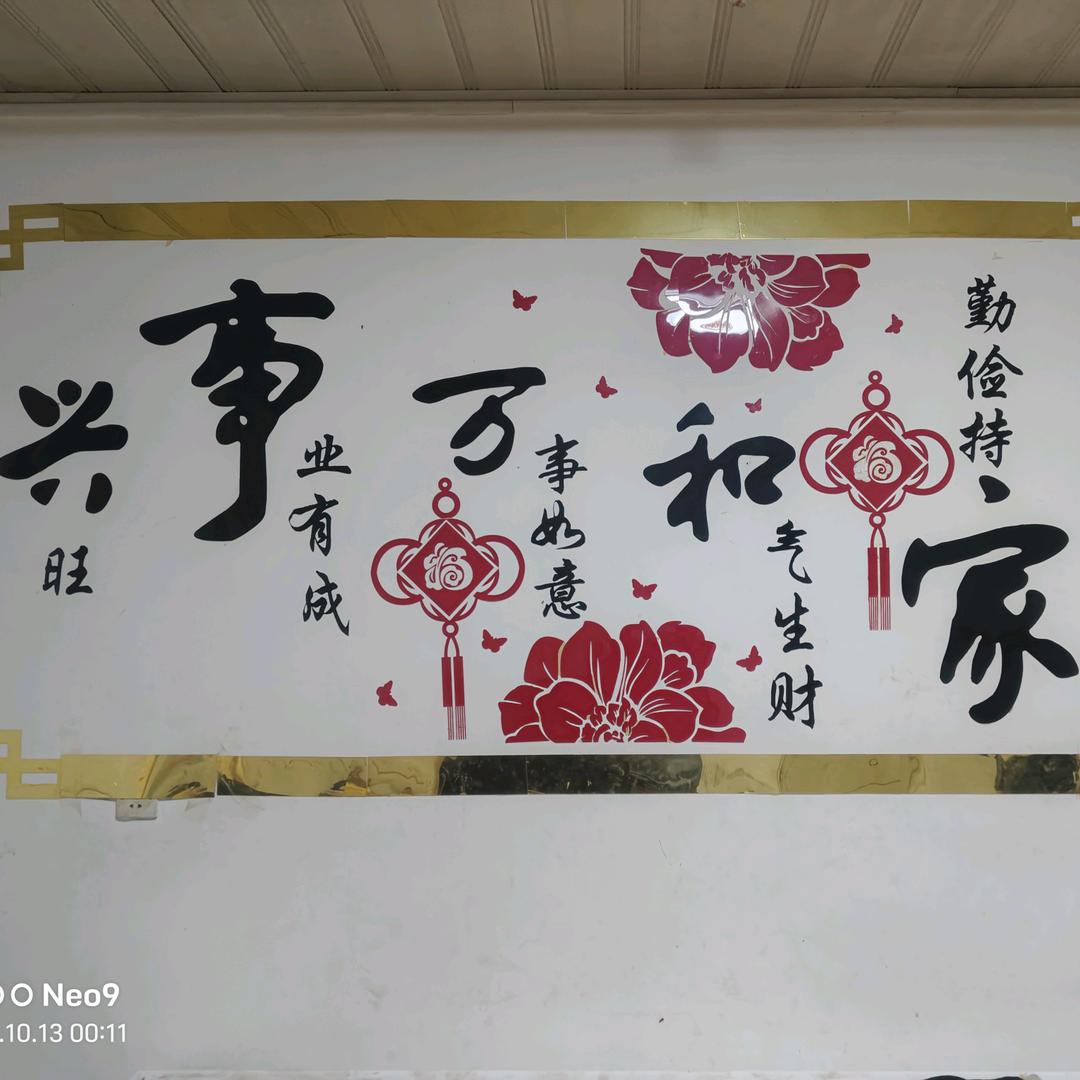 勤俭持家
福
和气生财
万事如意
福
事业有成
兴旺
Neo9
.10.13 00:11